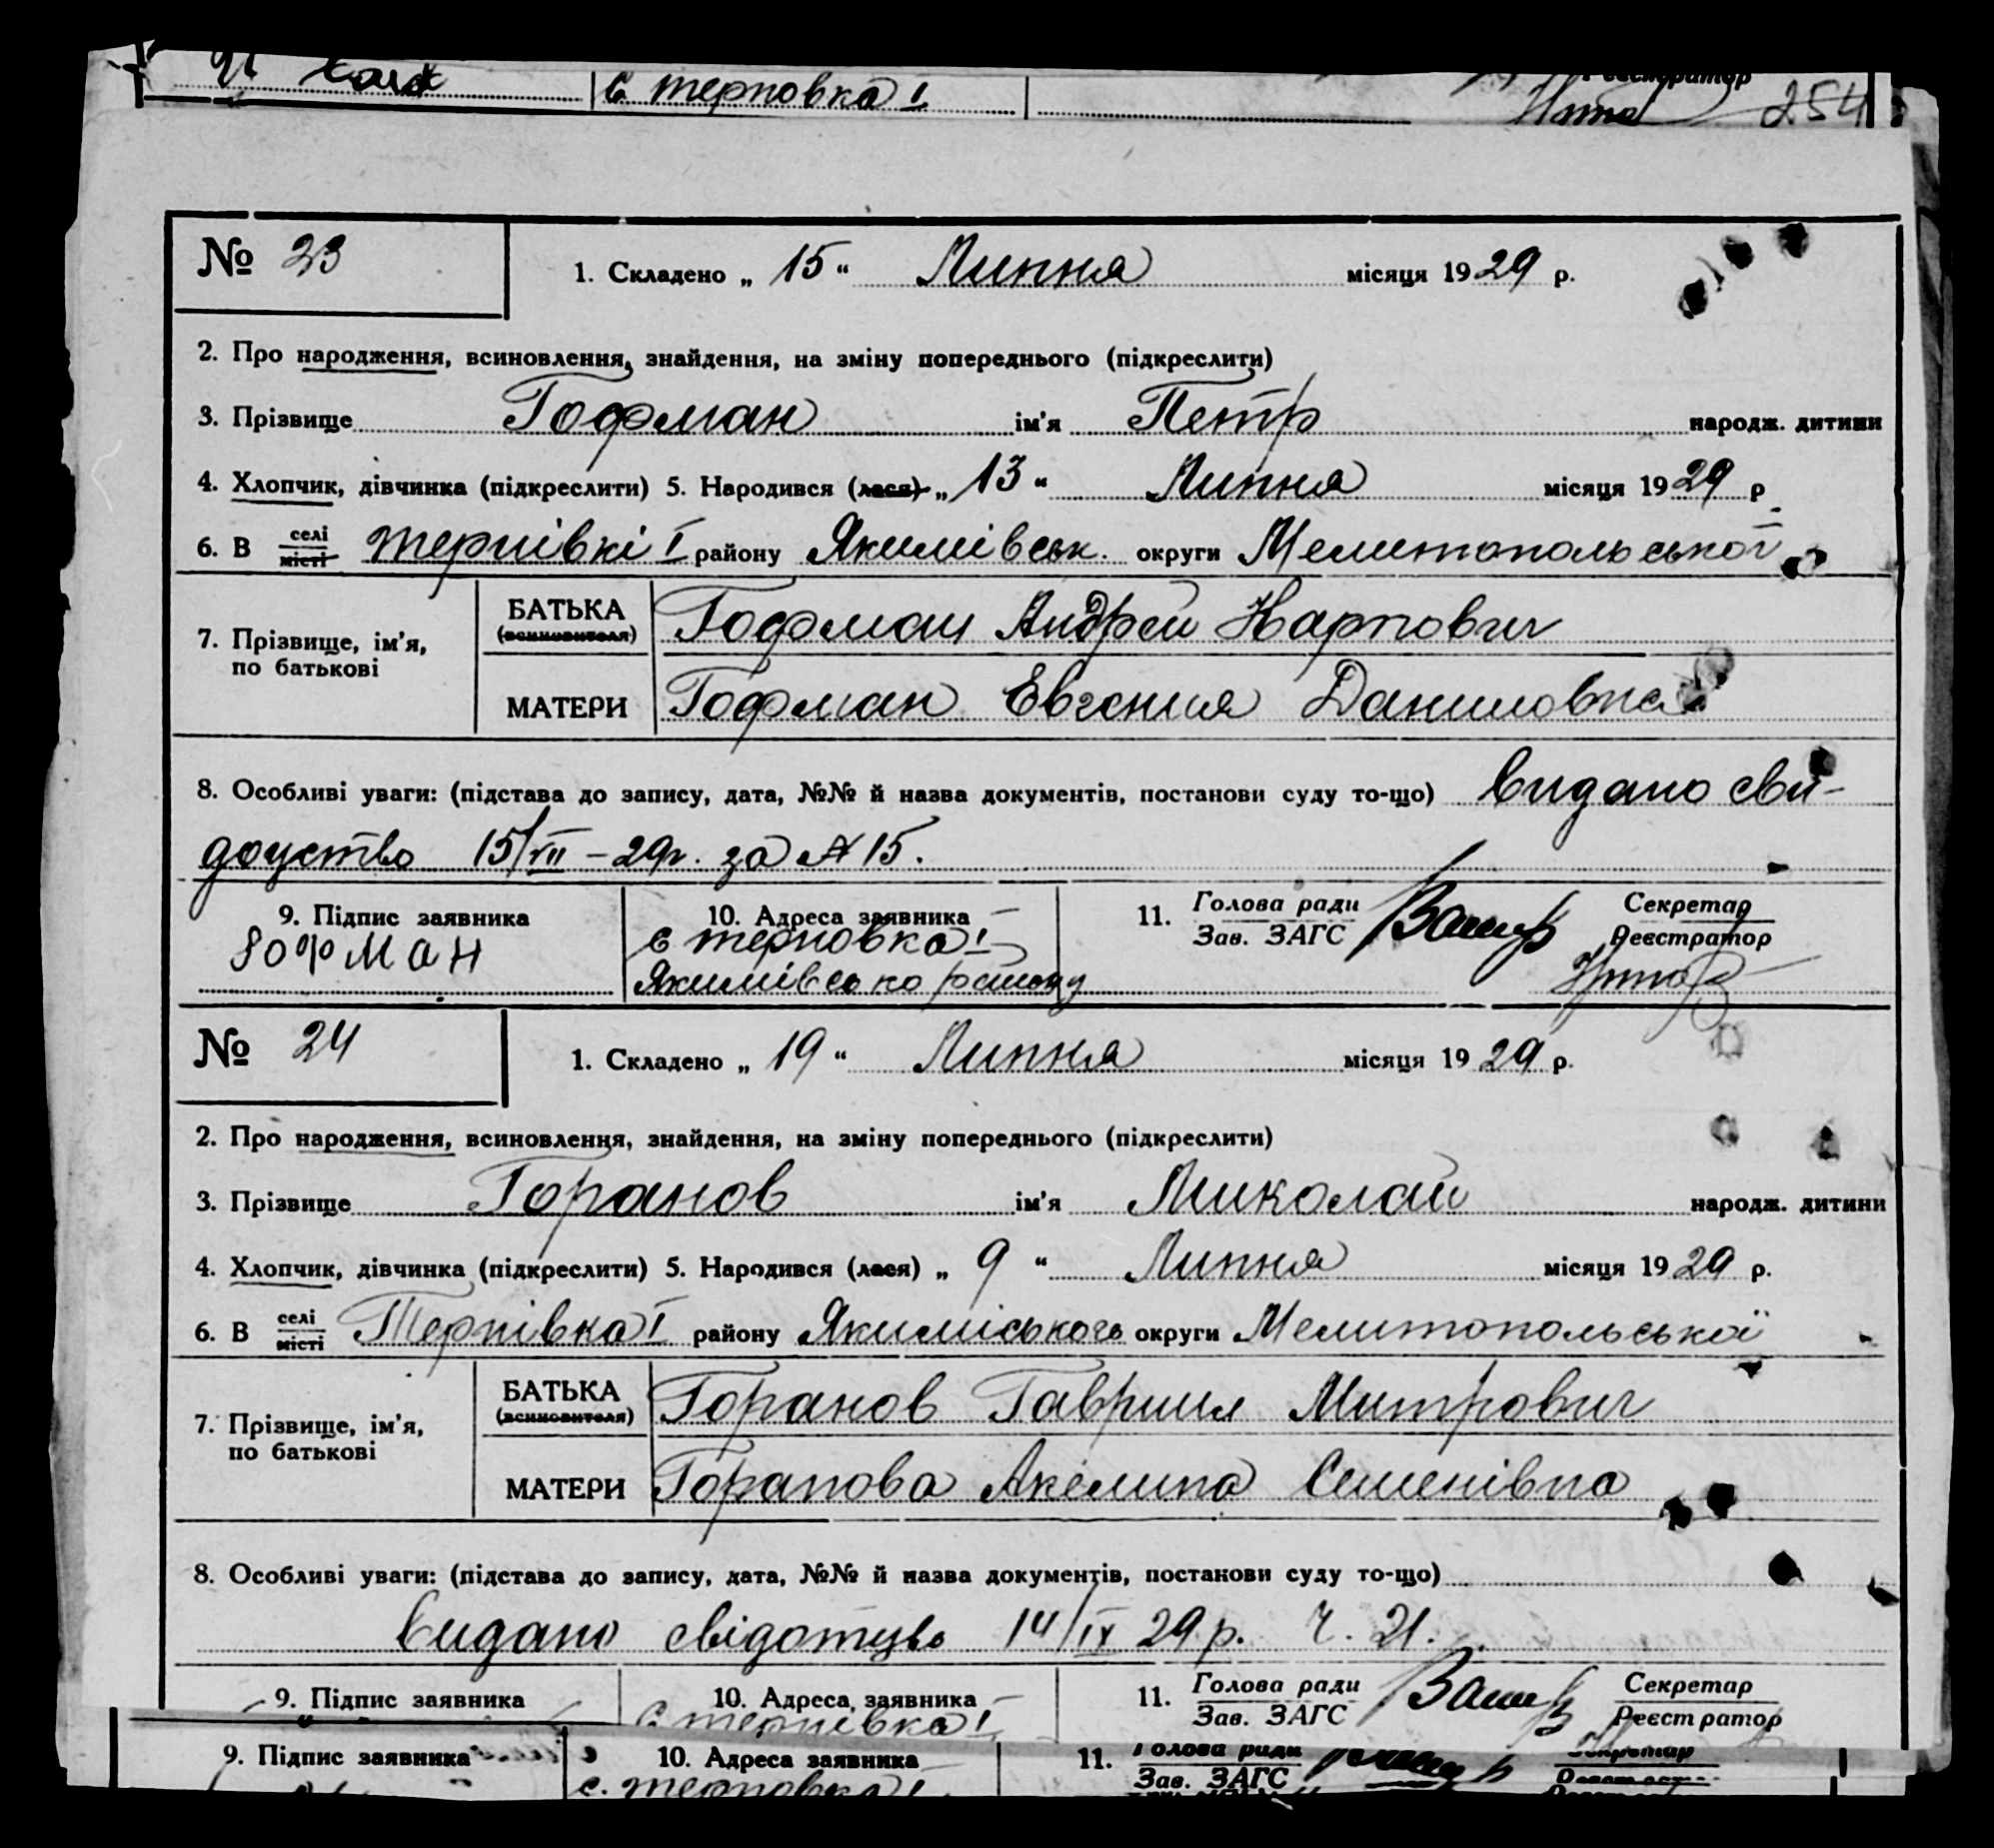 с терновка I
254
№ 23
1. Складено „ 15 “ Липня місяця 1929 р.
2. Про народження, всиновлення, знайдення, на зміну попереднього (підкреслити)
3. Прізвище Гофман ім'я Петр народж. дитини
4. Хлопчик, дівчинка (підкреслити) 5. Народився (лася) „ 13 “ Липня місяця 1929 р
6. В селі місті терпівкі I району Якимівськ. округи Мелитопольської
7. Прізвище, ім'я, по батькові
БАТЬКА (всиновителя) Гофман Андрей Карпович
МАТЕРИ Гофман Евгения Даниловна
8. Особливі уваги: (підстава до запису, дата, №№ й назва документів, постанови суду то-що) Видано сви-
доцство 15/VII – 29г. за № 15.
9. Підпис заявника 10. Адреса заявника 11. Голова ради Зав. ЗАГС Секретар Реєстратор
гофман с терновка I
Якимівсько району
№ 24
1. Складено „ 19 “ Липня місяця 1929 р.
2. Про народження, всиновлення, знайдення, на зміну попереднього (підкреслити)
3. Прізвище Горанов ім'я Миколай народж. дитини
4. Хлопчик, дівчинка (підкреслити) 5. Народився (лася) „ 9 “ Липня місяця 1929 р.
6. В селі місті Терпівка I району Якиміського округи Мелитопольської
7. Прізвище, ім'я, по батькові
БАТЬКА (всиновителя) Горанов Гавриил Митрович
МАТЕРИ Горанова Акелина Семенівна
8. Особливі уваги: (підстава до запису, дата, №№ й назва документів, постанови суду то-що)
Видано свідотцво 14/IX 29 р. Ч. 21.
9. Підпис заявника 10. Адреса заявника 11. Голова ради Зав. ЗАГС Секретар Реєстратор
с терпівка I
9. Підпис заявника 10. Адреса заявника 11. Голова ради Зав. ЗАГС Секретар
с. терновка I